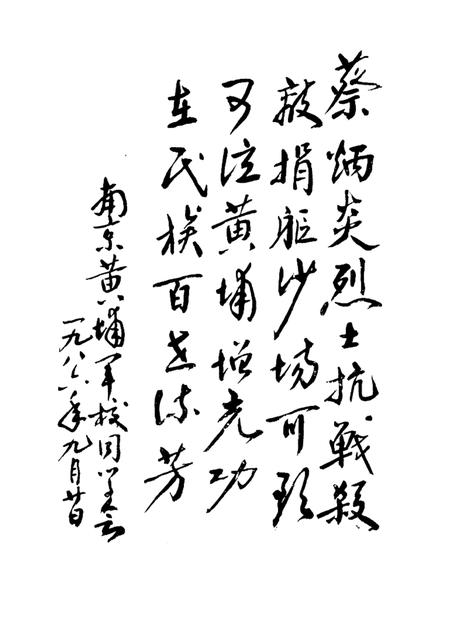 蔡炳炎烈士抗戰殺
敵捐躯沙場可歌
可泣黄埔增光功
在民族百世流芳
南京黄埔军校同学会
一九八六年九月廿日